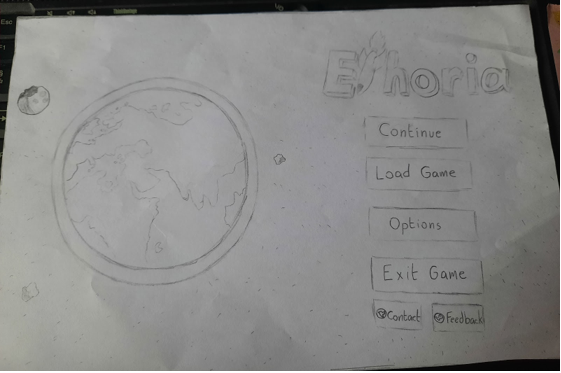 Esc
F1
Ephoria
Continue
Load Game
Options
Exit Game
Contact Feedback